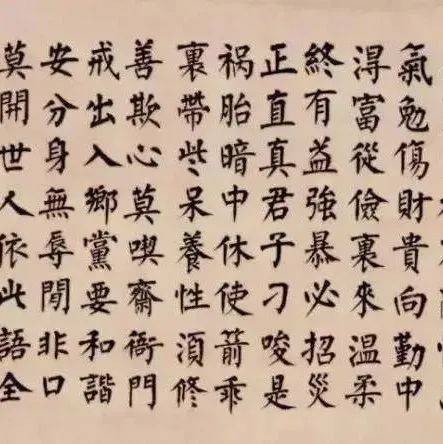 氣勉傷財貴向勤中
淂富從儉裏來温柔
終有益強暴必招災
正直真君子刁唆是
祸胎暗中休使箭乖
裏帶些呆養性湏修
善欺心莫喫齋衙門
戒出入鄉黨要和諧
安分身無辱閒非口
莫開世人依此語全